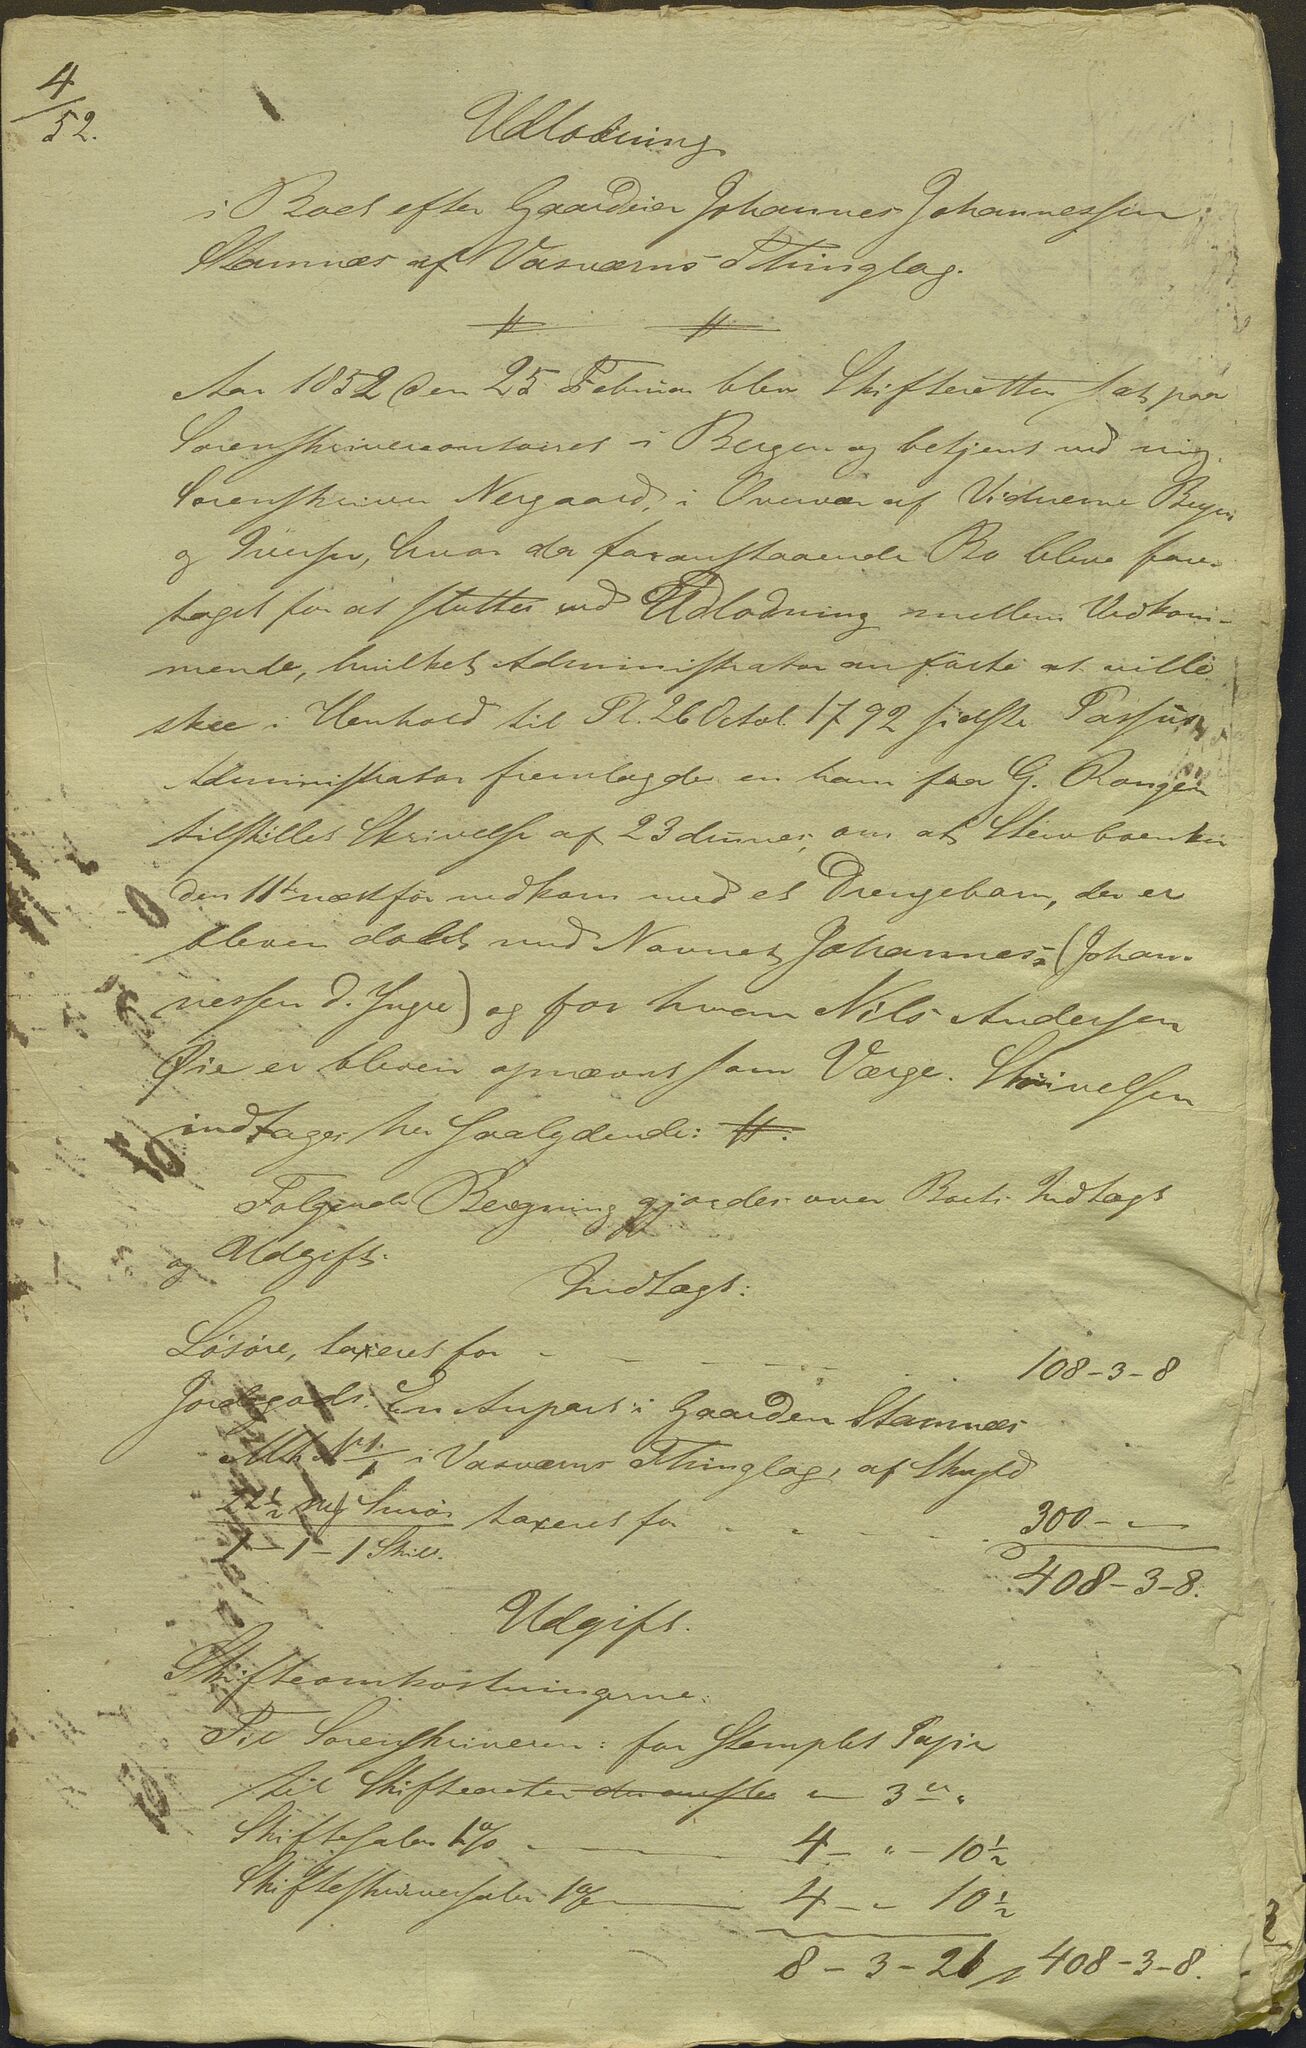 4/52.
Udlodning
i Boet efter Gaardeier Johannes Johannessen
Stamnæs af Vosværns Thinglag.
Aar 1852 den 25 Februar blev Skifteretten sat paa
Sorenskrivercontoiret i Bergen og betjent ved mig
Sorenskriver Nergaard, i Overvær af Vidnerne Beyer
og Iversen, hvor da foranstaaende Bo blev fore-
taget for at sluttes ved Udlodning mellem Vedkom-
mende, hvilket Administrator anførte at ville
skee i Henhold til Pl. 26 Octob. 1792 sidste Passus
Administrator fremlagde en ham fra G. Rongen
tilstillet Skrivelse af 23 dennes, om at Stervboenken
den 11te næstfør nedkom med et Drengebarn, der er
bleven døbt med Navnet Johannes (Johan-
nessen d. Yngre) og for hvem Nils Andersen
Øie er bleven opnævnt som Værge. Skrivelsen
indtages her saalydende:
Følgende Beregning gjordes over Boets Indtægt
og Udgift:
Indtægt:
Løsøre, taxeret for 108-3-8
Jordegods: En Anpart i Gaarden Stamnæs
Mtr. No 1/1 i Vosværns Thinglag, af Skyld
22½ mk Smør taxeret for 300-
1-1-1 Skill.
408-3-8.
Udgift.
Skifteomkostningerne:
Til Sorenskriveren: for Stemplet Papir
til Skifteacten 3
Skiftesalær 1% 4 - " - 10½
Skifteskriversalær 1% 4 - - 10½
8-3-21 408-3-8.